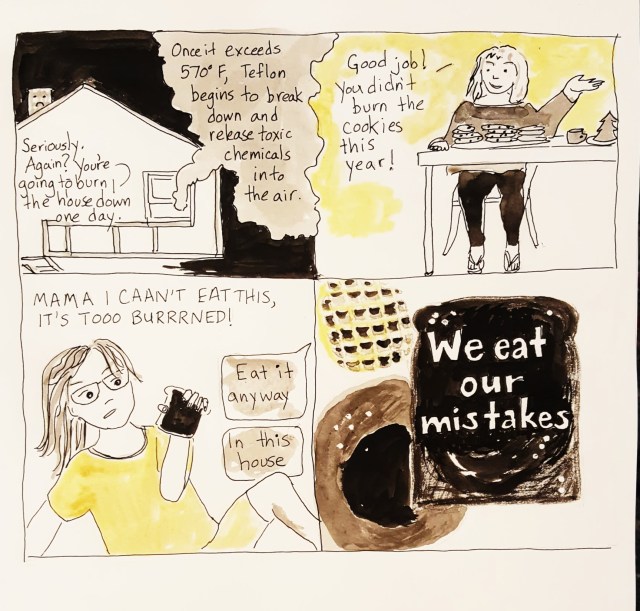 Once it exceeds
570° F, Teflon
begins to break
down and
release toxic
chemicals
into
the air.
Seriously.
Again? You're
going to burn
the house down
one day.
Good job!
You didn't
burn the
cookies
this
year!
MAMA I CAAN'T EAT THIS,
IT'S TOOO BURRRNED!
Eat it
anyway
In this
house
We eat
our
mistakes